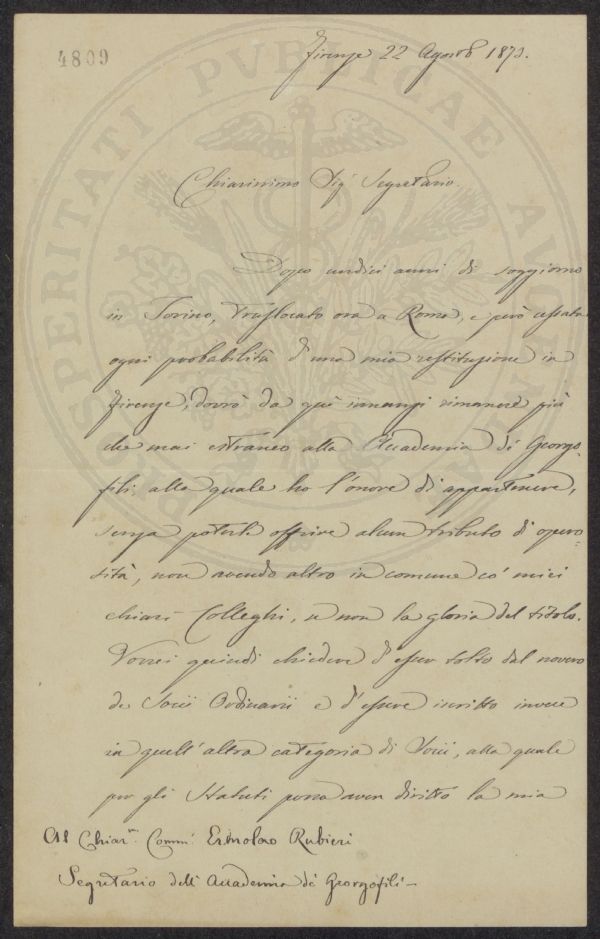 4809
Firenze 22 Agosto 1873.
Chiarissimo Sigr Segretario.
Dopo undici anni di soggiorno
in Torino, traslocato ora a Roma, e però cessata
ogni probabilità d'una mia restituzione in
Firenze, dovrò da quì innanzi rimanere più
che mai estraneo alla Accademia di Georgo-
fili, alla quale ho l'onore di appartenere,
senza poterle offrire alcun tributo di opero-
sità, non avendo altro in comune co' miei
chiari Colleghi, se non la gloria del titolo.
Vorrei quindi chiedere d'esser tolto dal novero
de Socii Ordinarii e d'essere iscritto invece
in quell'altra categoria di Socii, alla quale
per gli Statuti possa aver diritto la mia
Al Chiarmo Comm. Ermolao Rubieri
Segretario dell'Accademia de' Georgofili -
PROSPERITATI PUBLICAE AUGENDAE